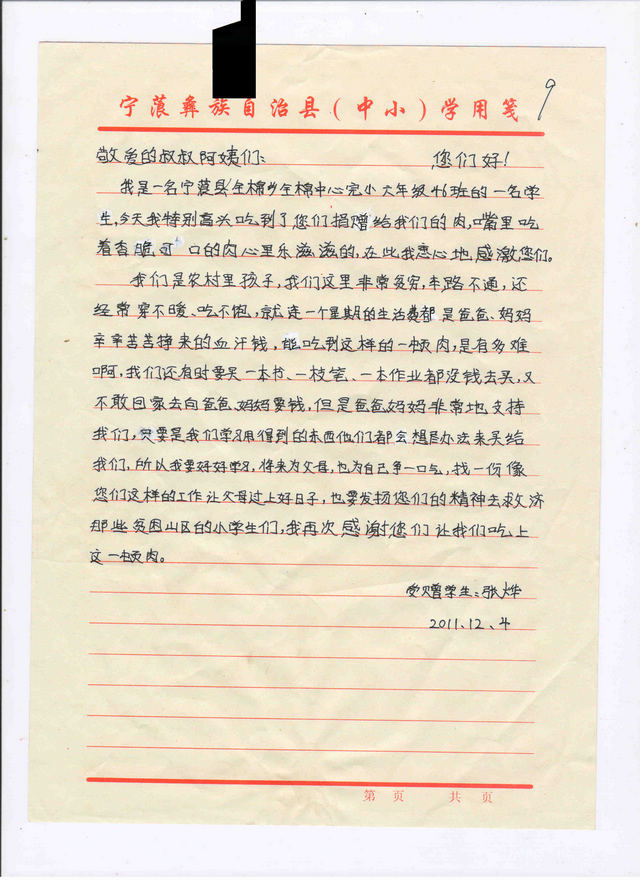 宁蒗彝族自治县(中小)学用笺
9
敬爱的叔叔阿姨们: 您们好!
我是一名宁蒗县金棉乡金棉中心完小六年级46班的一名学
生,今天我特别高兴吃到了您们捐赠给我们的肉,嘴里吃
着香脆可口的肉心里乐滋滋的,在此我衷心地感激您们。
我们是农村里孩子,我们这里非常贫穷,车路不通,还
经常穿不暖、吃不饱,就连一个星期的生活费都是爸爸、妈妈
辛辛苦苦挣来的血汗钱,能吃到这样的一顿肉,是有多难
啊,我们还有时要买一本书、一枝笔、一本作业都没钱去买,又
不敢回家去向爸爸、妈妈要钱,但是爸爸妈妈非常地支持
我们,只要是我们学习用得到的东西他们都会想尽办法来买给
我们,所以我要好好学习,将来为父母,也为自己争一口气,找一份像
您们这样的工作让父母过上好日子,也要发扬您们的精神去救济
那些贫困山区的小学生们,我再次感谢您们让我们吃上
这一顿肉。
受赠学生:张烨
2011.12.4
第 页 共 页